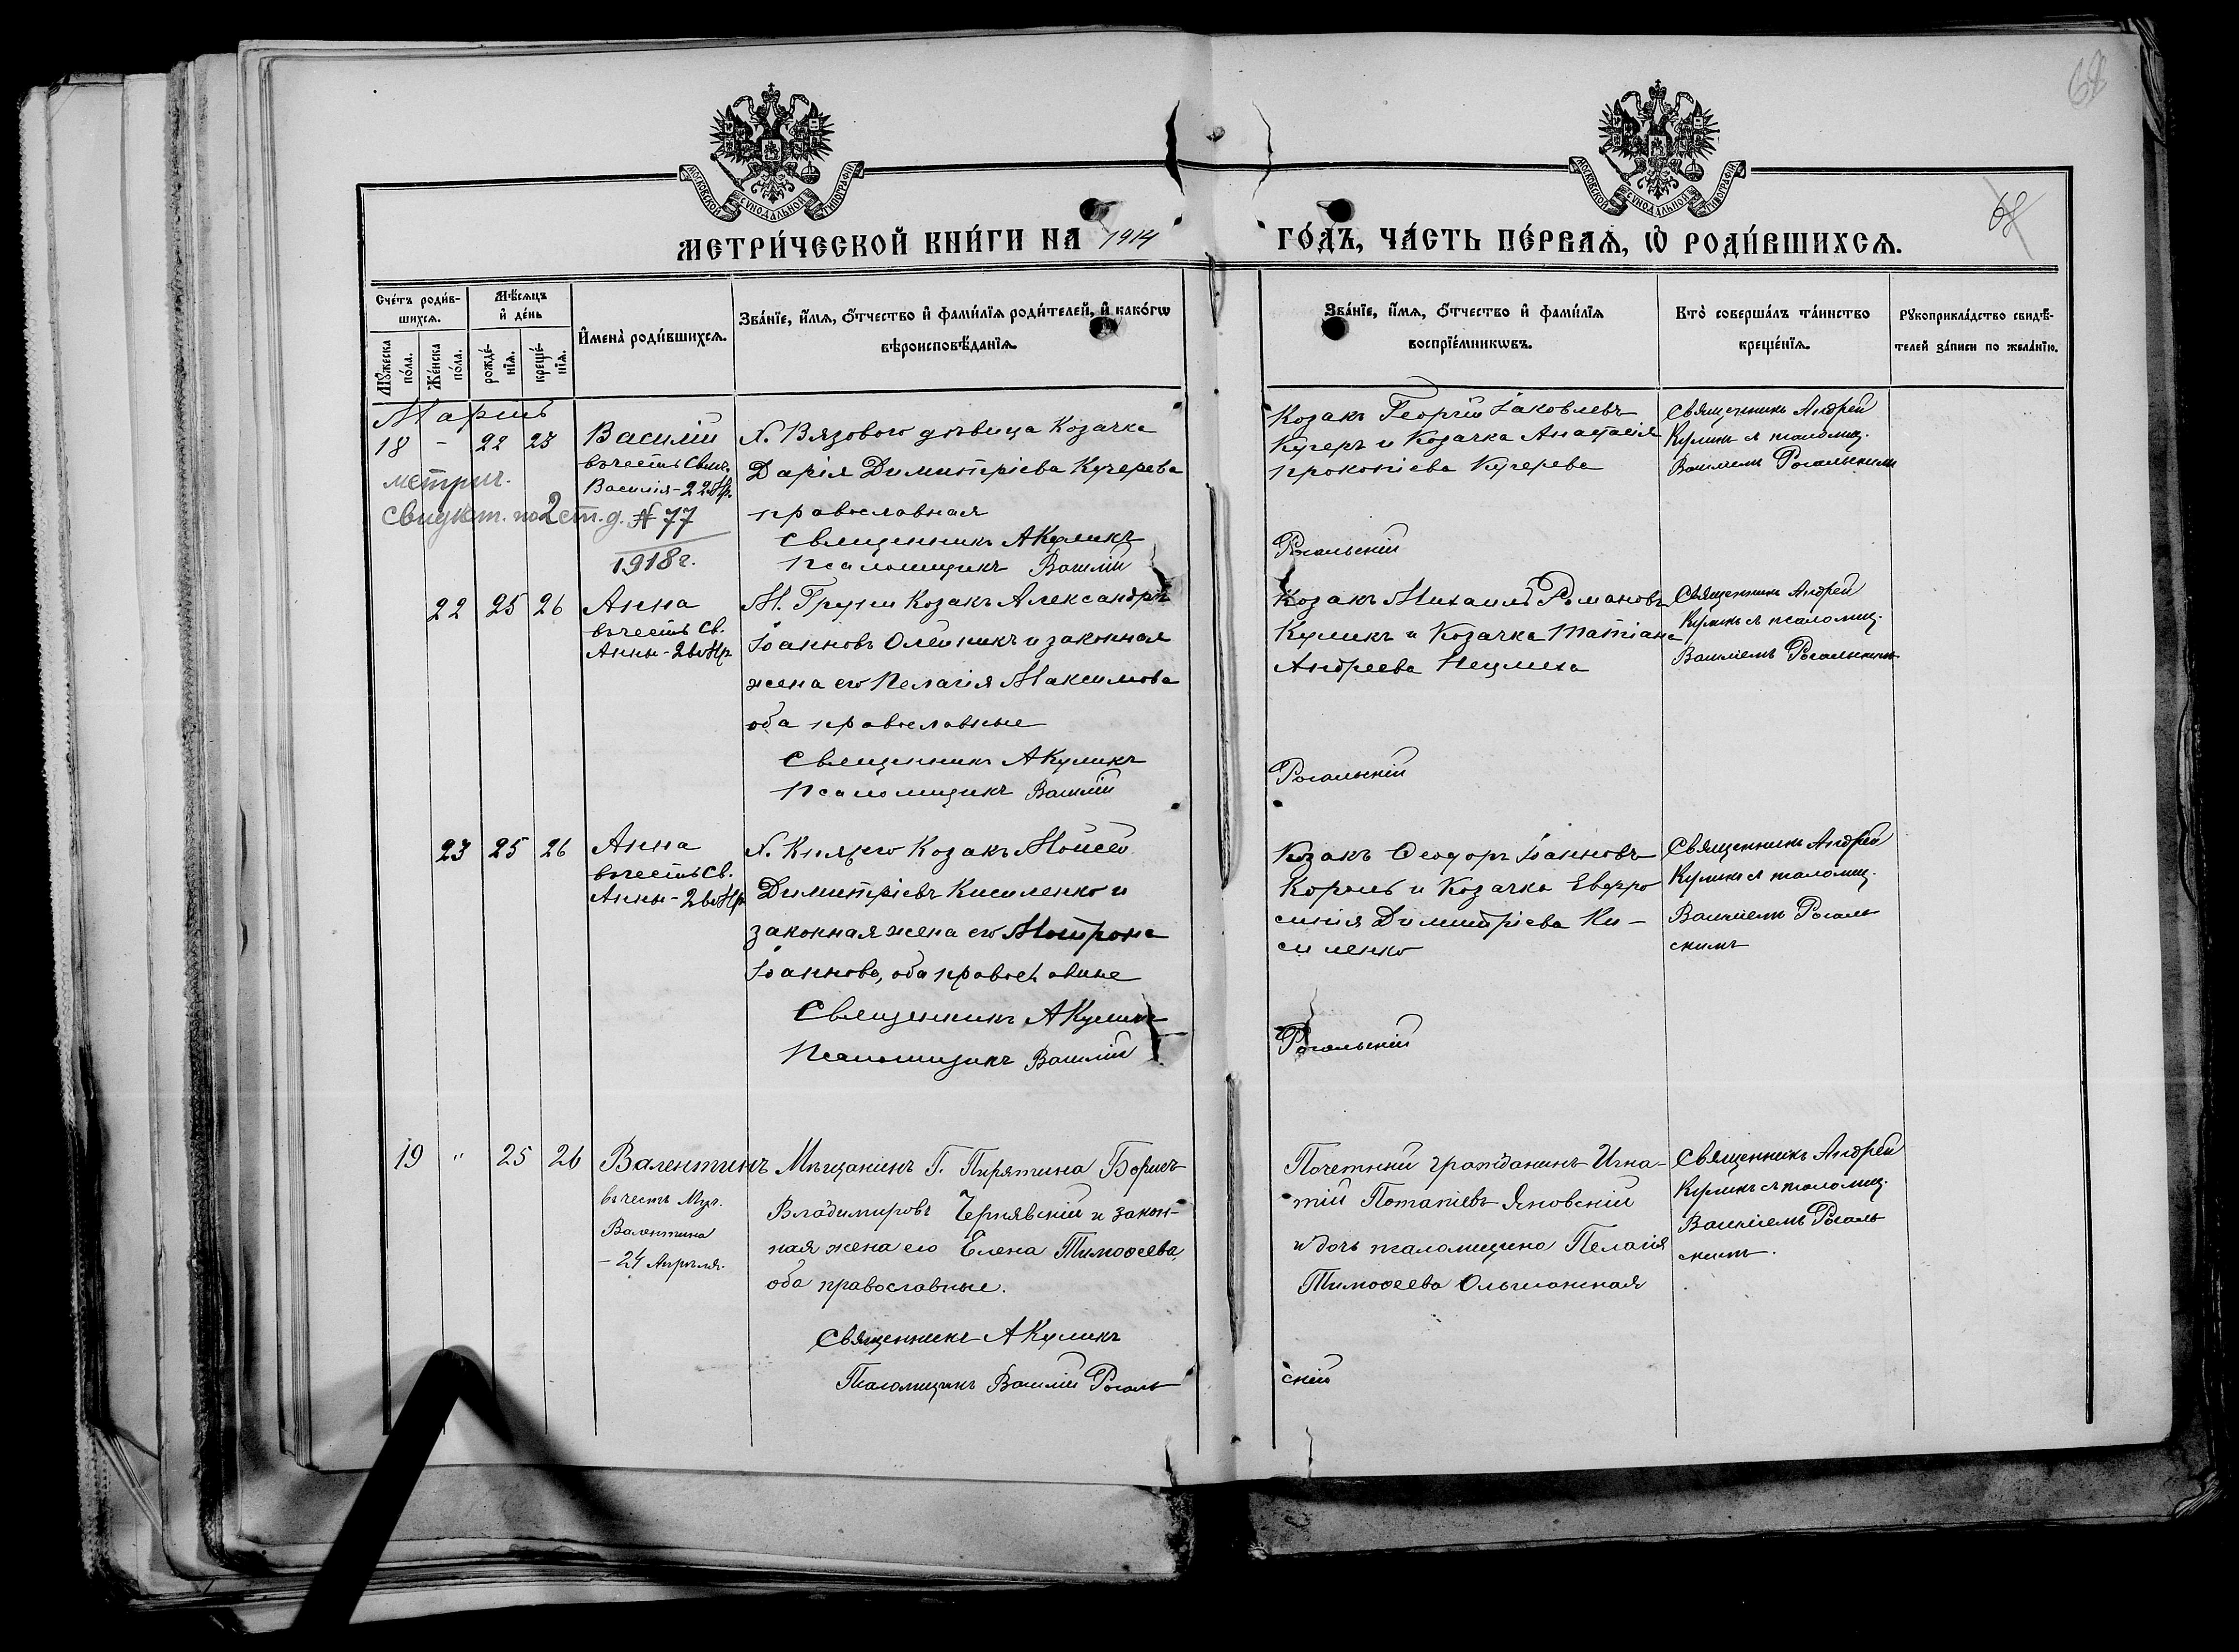 68
МОСКОВСКОЙ СѴНОДАЛЬНОЙ ТИПОГРАФІИ
МОСКОВСКОЙ СѴНОДАЛЬНОЙ ТИПОГРАФІИ
МЕТРИ́ЧЕСКОЙ КНИ́ГИ НА 1914
ГО́ДЪ, ЧА́СТЬ ПЕ́РВАѦ, Ѡ҆ РОДИ́ВШИХСѦ.
68
Сче́тъ роди́в-
шихсѧ.
Мѣ́сѧцъ
и҆ де́нь
Мꙋ́жеска
по́ла.
Же́нска
по́ла.
рожде́-
нїѧ.
креще́-
нїѧ.
И҆мена̀ роди́вшихсѧ.
Зва́нїе, и҆́мѧ, ѻ҆́тчество и҆ фами́лїѧ роди́телей, и҆ како́гѡ
вѣроисповѣ́данїѧ.
Зва́нїе, и҆́мѧ, ѻ҆́тчество и҆ фами́лїѧ
воспрїе́мникѡвъ.
Кто̀ соверша́лъ та́инство
креще́нїѧ.
Рꙋкоприкла́дство свидѣ́-
телей за́писи по жела́нїю.
Мартъ
18 - 22 23
Василій
въ честь Свящ.
Василія - 22 Мр.
метрич.
свидѣт. по 2 ст. д. № 77
1918 г.
Х. Вязового дѣвица Козачка
Дарія Димитріева Кучерева
православная
Священникъ А Куликъ
Псаломщикъ Василій
Козакъ Георгій Іаковлевъ
Кучеръ и Козачка Анастасія
Прокопіева Кучерева
Рогальскій
Священникъ Андрей
Куликъ съ псаломщ.
Василіемъ Рогальскимъ
22 25 26
Анна
въ честь Св.
Анны - 26 Мр
М. Груни Козакъ Александръ
Іоанновъ Олейникъ и законная
жена его Пелагія Максимова
оба православные
Священникъ А Куликъ
Псаломщикъ Василій
Козакъ Михаилъ Романовъ
Куликъ и Козачка Татіана
Андреева
Рогальскій
Священникъ Андрей
Куликъ съ псаломщ.
Василіемъ Рогальскимъ
23 25 26
Анна
въ честь Св.
Анны - 26 Мр
Х. Козакъ Мойсей
Димитріевъ Кисиленко и
законная жена его Мотрона
Іоаннова, оба православные
Священникъ А Куликъ
Псаломщикъ Василій
Козакъ Ѳеодоръ Іоанновъ
Король и Козачка Евфро
синія Димитріева Ки-
силенко
Рогальскій
Священникъ Андрей
Куликъ съ псаломщ.
Василіемъ Рогаль
скимъ
19 " 25 26
Валентинъ
въ честь Муч.
Валентина
- 24 Апрѣля.
Мѣщанинъ Г. Пирятина Борисъ
Владимировъ Чернявскій и закон-
ная жена его Елена Тимоѳеева,
оба православные.
Священникъ А Куликъ
Псаломщикъ Василій Рогаль
Почетный гражданинъ Игна-
тій Потапіевъ Яновскій
и дочь псаломщика Пелагія
Тимоѳеева Ольшанская
скій
Священникъ Андрей
Куликъ съ псаломщ.
Василіемъ Рогаль
скимъ.